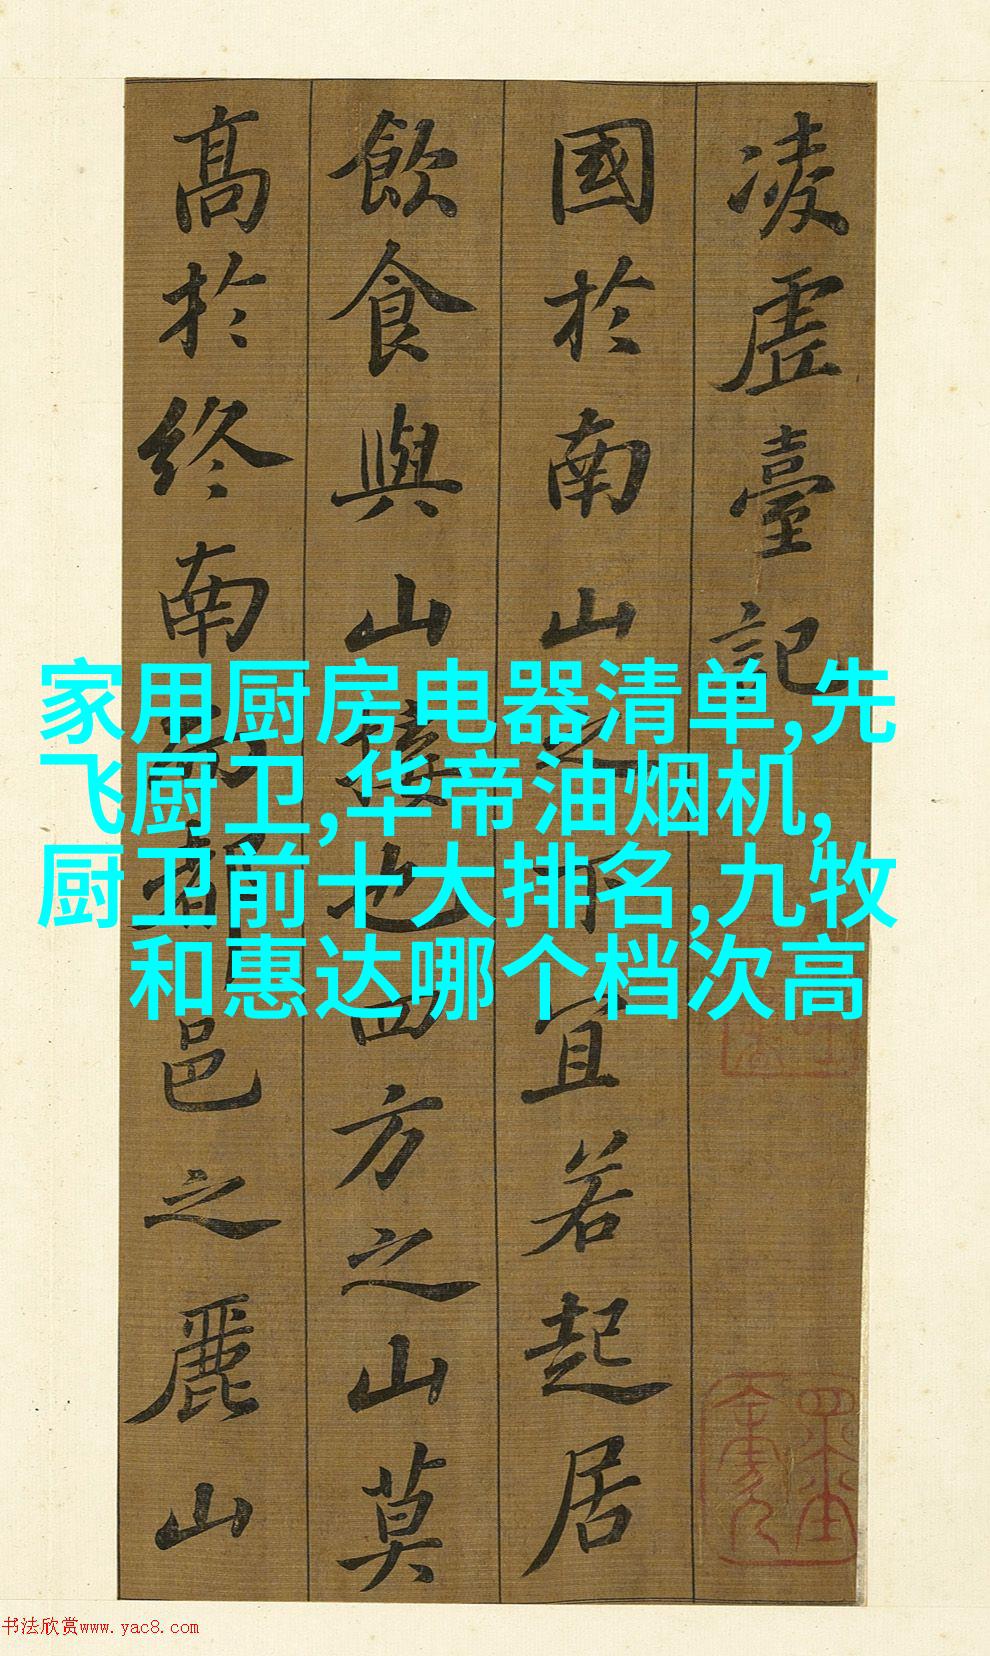 凌虛臺記
國於南山之下宜若起居
飲食與山接也四方之山莫
高於終南而都邑之麗山
家用厨房电器清单,先
飞厨卫,华帝油烟机,
厨卫前十大排名,九牧
和惠达哪个档次高
书法欣赏www.yac8.com